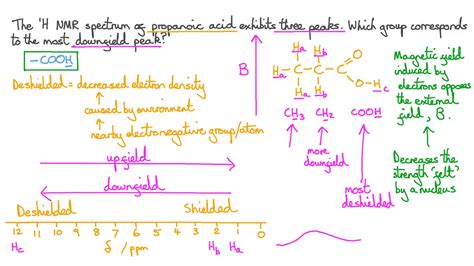 The ¹H NMR spectrum of propanoic acid exhibits three peaks. Which group corresponds
to the most downfield peak?
-COOH
Deshielded = decreased electron density
caused by environment
nearby electronegative group/atom
upfield
downfield
Deshielded
Shielded
12 11 10 9 8 7 6 5 4 3 2 1 0
Hc
δ / ppm
Hb
Ha
B
Ha Hb
O
Ha-C-C-C
O-Hc
Ha Hb
CH₃ CH₂ COOH
more
downfield
most
deshielded
Magnetic field
induced by
electrons opposes
the external
field, B.
Decreases the
strength 'felt'
by a nucleus